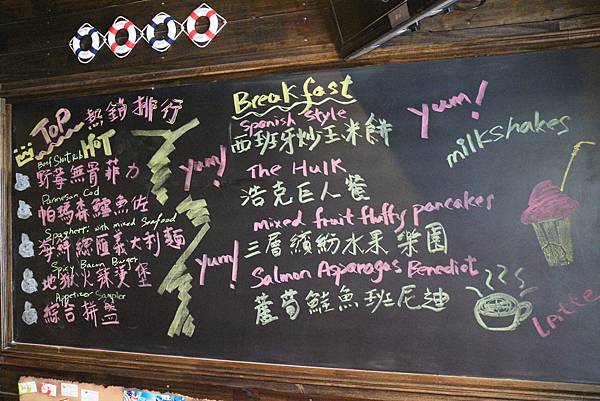 TOP 熱銷排行
HOT
Beef Short Rib
野莓無骨菲力
Parmesan Cod
帕瑪森鱈魚佐
Spaghetti with mixed Seafood
海鮮總匯義大利麵
Spicy Bacon Burger
地獄火辣漢堡
Appetizer Sampler
綜合拼盤
yum!
yum!
Breakfast
Spanish Style
西班牙炒玉米餅
The Hulk
浩克巨人餐
mixed fruit fluffy pancakes
三層繽紛水果樂園
Salmon Asparagas Benedict
蘆筍鮭魚班尼迪
yum!
milkshakes
Latte